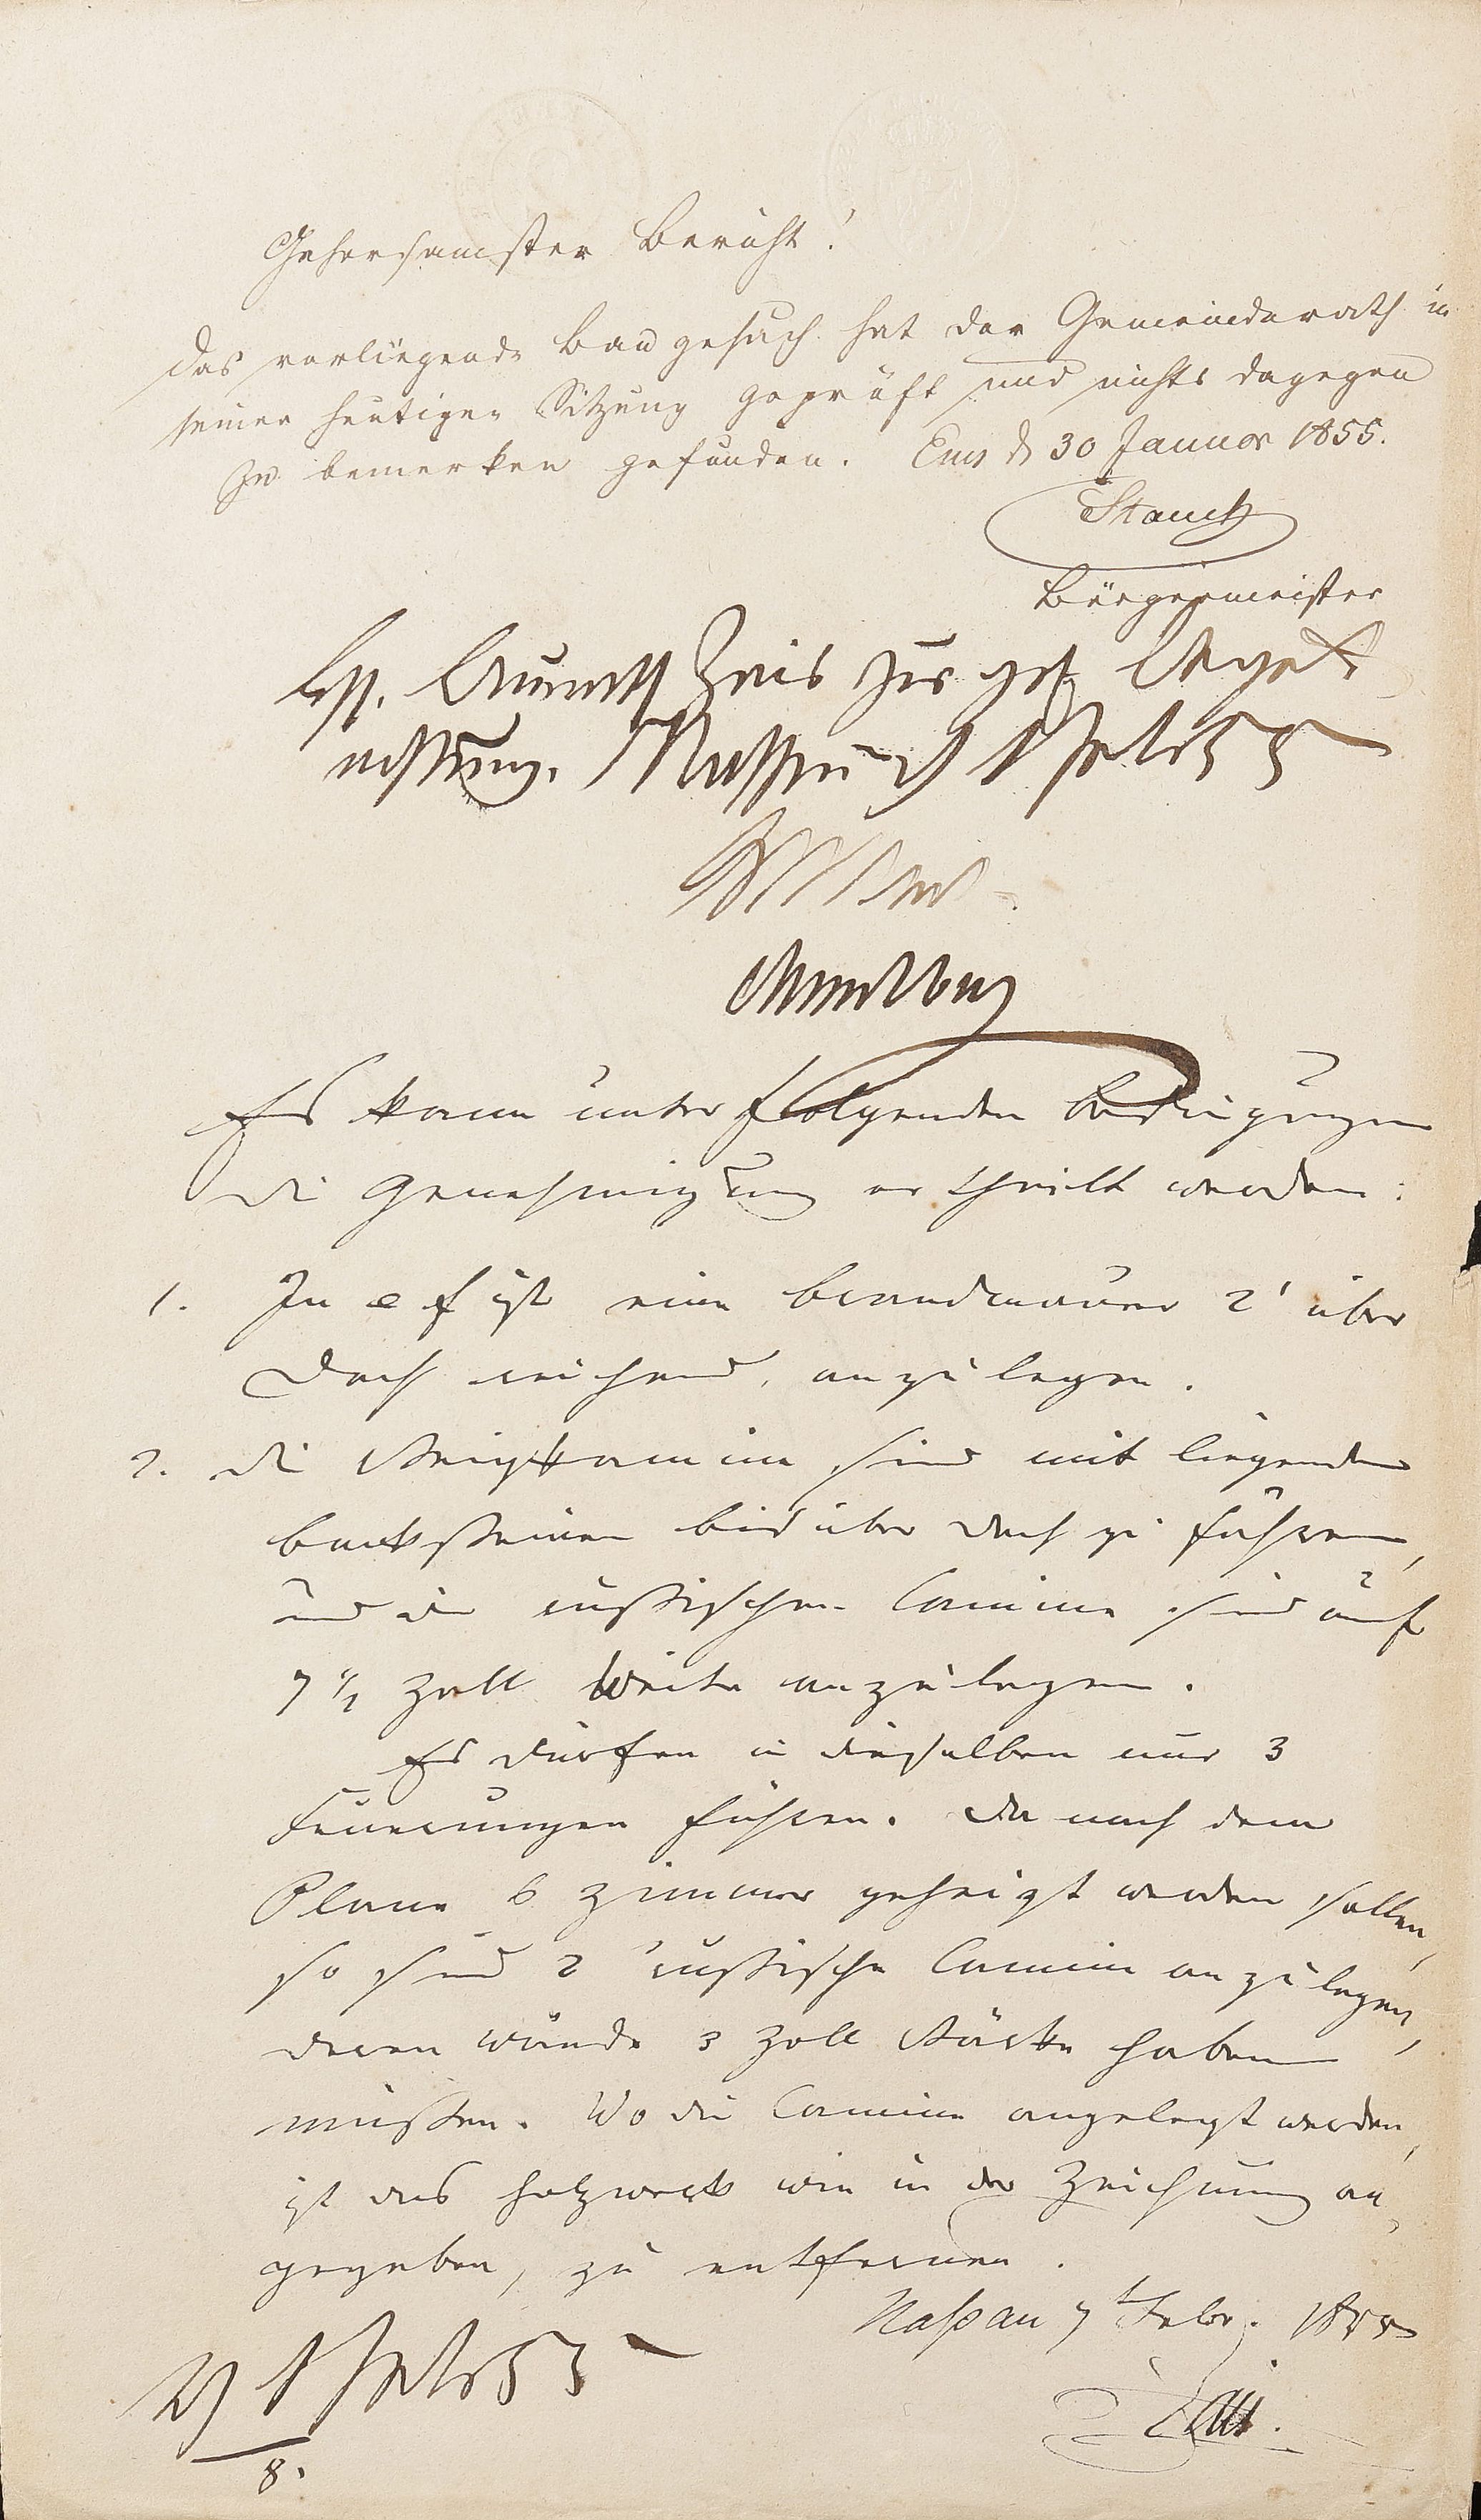 Gehorsamster Bericht!
Das vorliegende Baugesuch hat der Gemeinderath in
seiner heutigen Sitzung geprüft und nichts dagegen
zu bemerken gefunden. Ems d 30 Januar 1855.
Stauch
Bürgermeister
Zais zur gef.
Nassau d
Es kann unter folgenden Bedingungen
die Genehmigung ertheilt werden:
1. In e f ist eine Brandmauer 2' über
Dach reichend, anzulegen.
2. die Steigkamine sind mit liegenden
Backsteinen bis über Dach zu führen,
und die russischen Camine sind auf
7 1/2 Zoll Weite anzulegen.
Es dürfen in dieselben nur 3
Feuerungen führen. Da nach dem
Plane 6 Zimmer geheizt werden sollen,
so sind 2 russische Camine anzulegen,
deren Wände 3 Zoll Stärke haben
müssen. Wo die Camine angelegt werden,
ist das Holzwerk wie in der Zeichnung an
gegeben, zu entfernen.
Nassau 7 t Febr. 1855
Zais.
8.